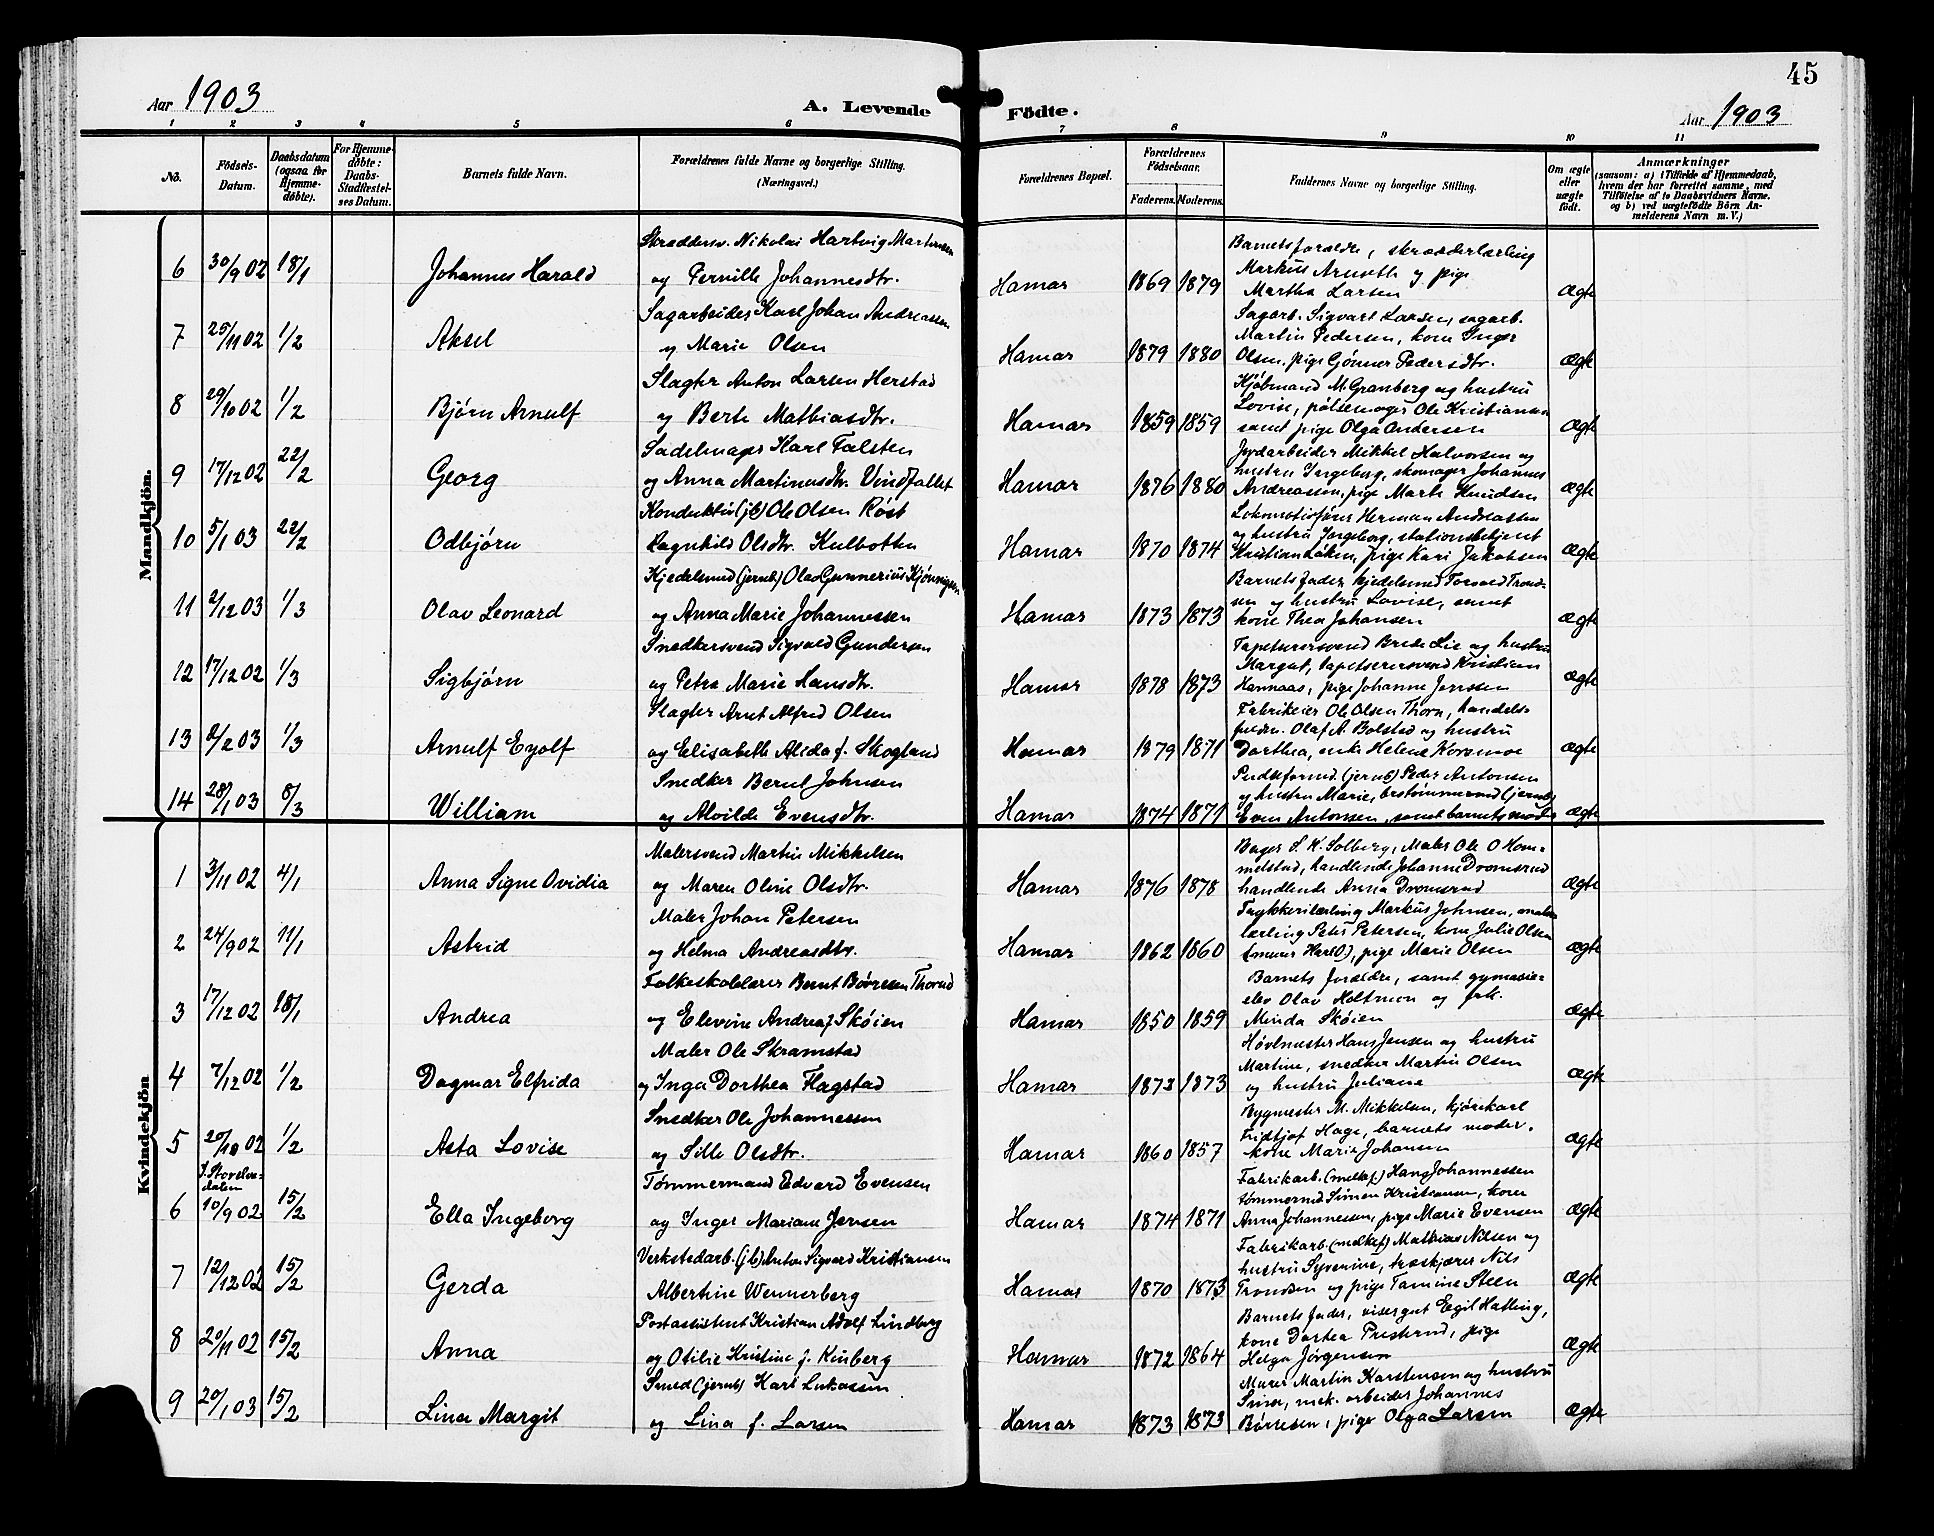 45
Aar 1903
A. Levende Födte.
Aar 1903
1 2 3 4 5 6 7 8 9 10 11
No.
Födsels-Datum.
Daabsdatum (ogsaa for Hjemme-döbte).
For Hjemme-döbte: Daabs-Stadfæstel-ses Datum.
Barnets fulde Navn.
Forældrenes fulde Navne og borgerlige Stilling. (Næringsvei.)
Forældrenes Bopæl.
Forældrenes Födselsaar.
Faderens. Moderens.
Faddernes Navne og borgerlige Stilling.
Om ægte eller uægte födt.
Anmærkninger
(saasom: a) i Tilfælde af Hjemmedaab, hvem der har forrettet samme, med Tilföielse af to Daabsvidners Navne, og b) ved uægtefödte Börn An-melderens Navn m. V.)
Mandkjön.
Skræddersv. Nikolai Hartvig Martinsen
Barnets forældre, skrædderlærling
6 30/9 02 18/1 Johannes Harald og Pernille Johannesdtr. Hamar 1869 1879 Markus Arneth og pige
Martha Larsen Ægte
Sagarbeider Karl Johan Andreassen
Sagarb. Sigvart Larsen, sagarb.
7 25/11 02 1/2 Aksel og Marie Olsen Hamar 1879 1880 Martin Pedersen, kone Inger
Olsen, pige Gönner Pedersdtr. Ægte
Slagter Anton Larsen Herstad
Kjöbmand M. Granberg og hustru
8 29/10 02 1/2 Björn Arnulf og Berte Mathiasdtr. Hamar 1859 1859 Lovise, pölsemager Ole Kristiansen
samt pige Olga Andersen Ægte
Sadelmager Karl Falsten
Jordarbeider Mikkel Halvorsen og
9 17/12 02 22/2 Georg og Anna Martinusdtr. Vindfallet Hamar 1876 1880 hustru Ingeborg, skomager Johannes
Andreassen, pige Marte Knudsen Ægte
Konduktör (jb) Ole Olsen Röst
Lokomotivförer Herman Andreassen
10 5/1 03 22/2 Odbjörn Ragnhild Olsdtr. Kulbotten Hamar 1870 1874 og hustru Ingeborg, stationsbetjent
Kristian Löken, pige Kari Jakobsen Ægte
Kjedelsmed (jernb) Olav Gunnerius
Barnets fader, kjedelsmed Torvald Trond-
11 2/12 03 1/3 Olav Leonard og Anna Marie Johannessen Hamar 1873 1873 sen og hustru Lovise, samt
kone Thea Johansen Ægte
Snedkersvend Sigvald Gundersen
Tapetserersvend Brede Lie og hustru
12 17/12 02 1/3 Sigbjörn og Petra Marie Hansdtr. Hamar 1878 1873 Margit, tapetserersvend Kristian
Hannaas, pige Johanne Jenssen Ægte
Slagter Arnt Alfred Olsen
Fabrikeier Ole Olsen Thorn, handels-
13 2/2 03 1/3 Arnulf Eyolf og Elisabeth Alida f. Skogland Hamar 1879 1871 Olaf A. Bolstad og hustru
Dorthea, enke Helene Korsmoe Ægte
Snedker Bernt Johnsen
Pudseformd. (jernb) Peder Antonsen
14 28/1 03 8/3 William og Alvilde Evensdtr. Hamar 1874 1871 og hustru Marie,
Even Antonsen, samt barnets moder Ægte
Kvindekjön
Malersvend Martin Mikkelsen
Bager S. K. Solberg, Maler Ole O Hom-
1 3/11 02 4/1 Anna Signe Ovidia og Maren Oline Olsdtr. Hamar 1876 1878 melstad, handlende Johanne Dromsrud
handlende Anna Dromsrud Ægte
Maler Johan Petersen
Trykkerilærling Markus Johnsen, maler-
2 24/9 02 11/1 Astrid og Helma Andreasdtr. Hamar 1862 1860 lærling Peter Petersen, kone Julie Olsen
pige Marie Olsen Ægte
Folkeskolelærer Bernt Börresen Thorud
Barnets forældre, samt gymnasie-
3 17/12 02 18/1 Andrea og Elevine Andrea f. Sköien Hamar 1850 1859 elev Olav Holtmon og frk.
Minda Sköien Ægte
Maler Ole Skramstad
Hövlmester Hans Jensen og hustru
4 7/12 02 1/2 Dagmar Elfrida og Inga Dorthea Flagstad Hamar 1873 1873 Martine, snedker Martin Olsen
og hustru Juliane Ægte
Snedker Ole Johannessen
Bygmester M. Mikkelsen, kjörekarl
5 20/10 02 1/2 Asta Lovise og Sille Olsdtr. Hamar 1860 1857 Fridtjof Hage, barnets moder,
kone Marie Johansen Ægte
I. Storelve-dalen
Tömmermand Edvard Evensen
Fabrikarb. (melkef.) Hans Johannessen
6 10/9 02 15/2 Ella Ingeborg og Inger Mariane Jensen Hamar 1874 1871 tömmermd Simen Kristiansen, kone
Anna Johannessen, pige Marie Evensen Ægte
Verkstedarb. (jb) Anton Sigvard Kristiansen
Fabrikarb. (melkef) Mathias Nilsen og
7 12/12 02 15/2 Gerda Albertine Wennerberg Hamar 1870 1873 hustru Syverine, træskjærer Nils
Trondsen og pige Tomine Steen Ægte
Postassistent Kristian Adolf Lindberg
Barnets fader, visergut Egil Hatling,
8 20/11 02 15/2 Anna og Otilie Kristine f. Kinberg Hamar 1872 1864 kone Dortea Presterud, pige
Helga Jörgensen Ægte
Smed (jernb) Karl Lukassen
Murer Martin Karstensen og hustru
9 20/1 03 15/2 Lina Margit og Lina f. Larsen Hamar 1873 1873 Sina, mek. arbeider Johannes
Börresen, pige Olga Larsen Ægte